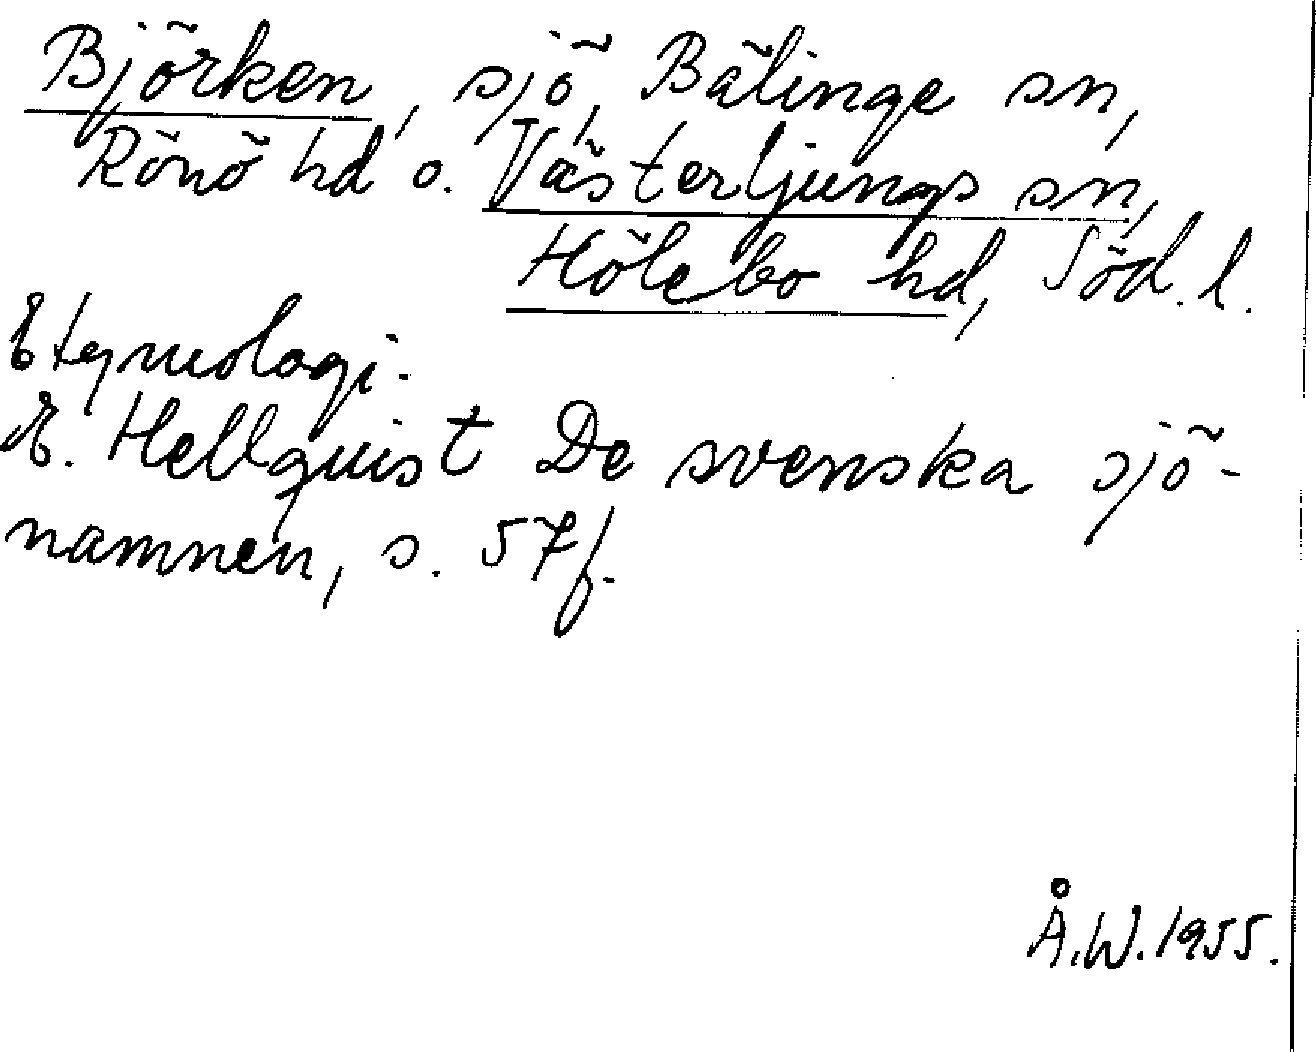 Björken, sjö, Bälinge sn,
Rönö hd o. Västerljungs sn,
Hölebo hd, Söd. l.
Etymologi.
E. Hellquist De svenska sjö-
namnen, s. 57 f.
Å.W. 1955.